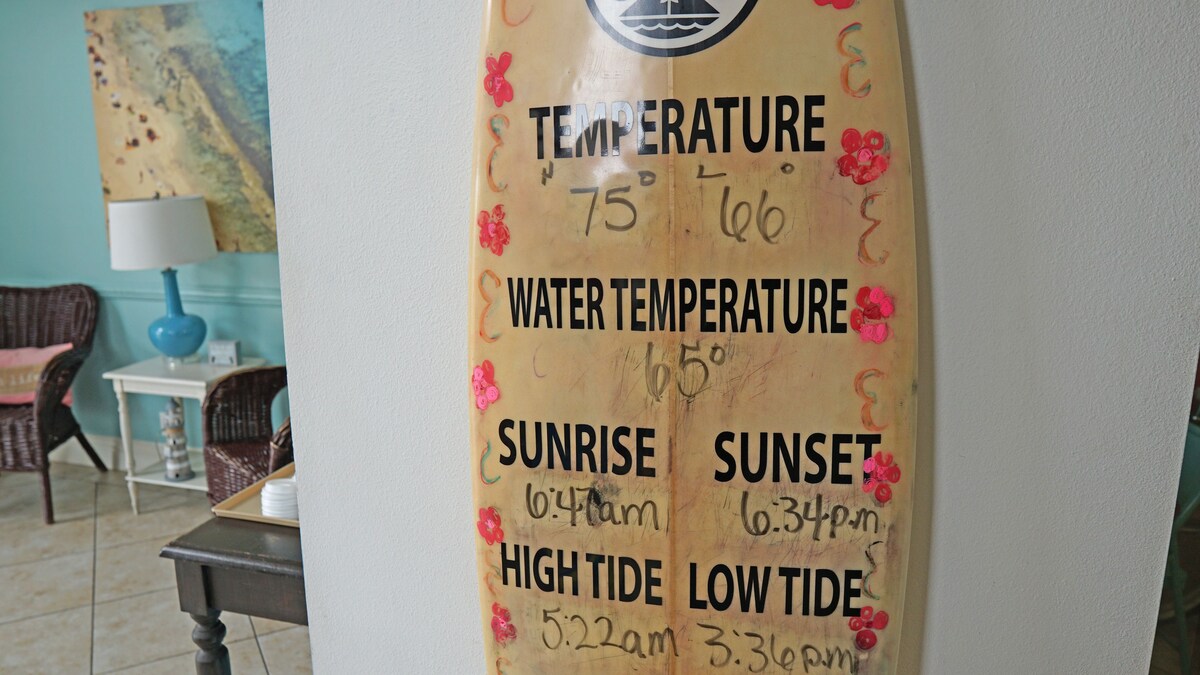 TEMPERATURE
H 75° L 66°
WATER TEMPERATURE
65°
SUNRISE SUNSET
6:47am 6:34p.m
HIGH TIDE LOW TIDE
5:22am 3:36p.m